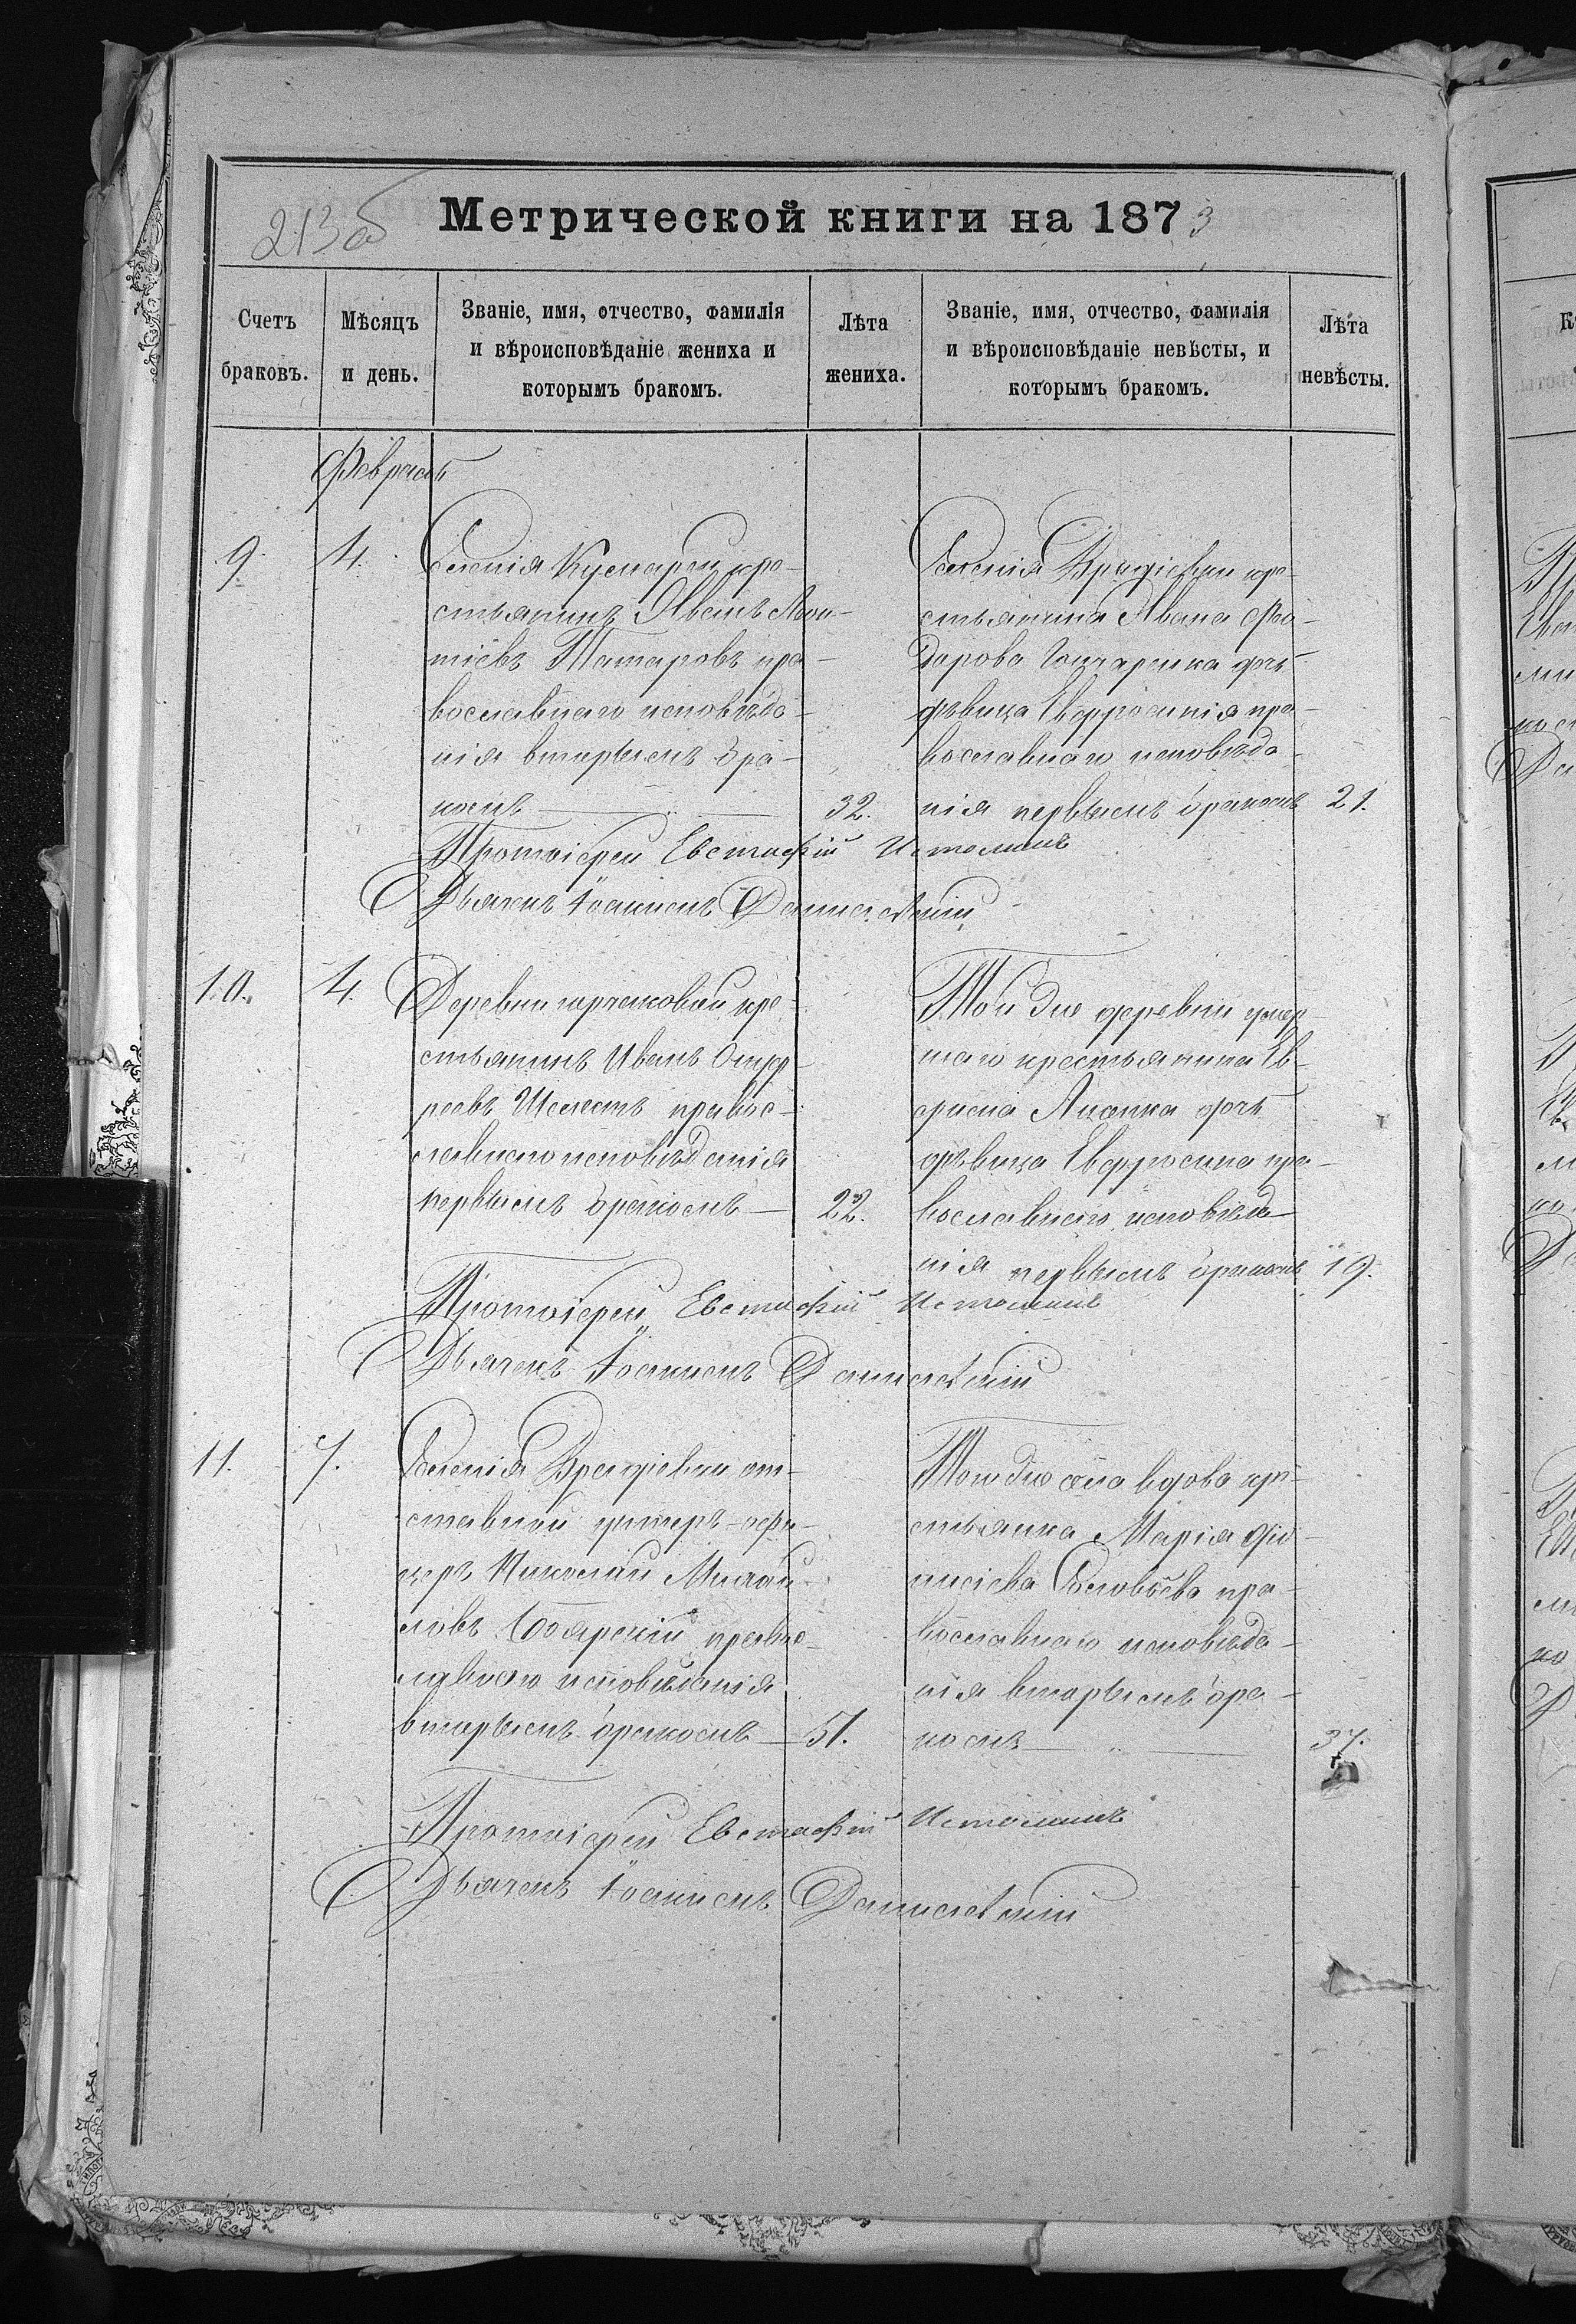 213 об
Метрической книги на 1873
Счетъ браковъ.
Мѣсяцъ и день.
Званіе, имя, отчество, фамилія и вѣроисповѣданіе жениха и которымъ бракомъ.
Лѣта жениха.
Званіе, имя, отчество, фамилія и вѣроисповѣданіе невѣсты, и которымъ бракомъ.
Лѣта невѣсты.
Февраль
9. 4.
Селенія Кумарей кре-
стьянинъ Иванъ Леон-
тіевъ Татаровъ пра-
вославнаго исповѣда-
нія вторымъ бра-
комъ 32.
Селенія Врадіевки кре-
стьянина Ивана Фео-
дорова Гончаренка дочь
дѣвица Евфросинія пра-
вославнаго исповѣда-
нія первымъ бракомъ 21.
Протоіерей Евстафій Истоминъ
Дьячекъ Іоакимъ Данилевскій
10. 4.
Деревни кре-
стьянинъ Иванъ
Шелестъ правос-
лавнаго исповѣданія
первымъ бракомъ 22.
Той же деревни умер-
шаго крестьянина Ев-
фимія дочь
дѣвица Евфросина пра-
вославнаго исповѣда-
нія первымъ бракомъ 19.
Протоіерей Евстафій Истоминъ
Дьячекъ Іоакимъ Данилевскій
11. 7.
Селенія Врадіевки от-
ставной унтеръ-офи-
церъ Николай Михай-
ловъ Боярскій правос-
лавнаго исповѣданія
вторымъ бракомъ 51.
Того же села вдова кре-
стьянка Марія Діо-
нисіева Соловьева пра-
вославнаго исповѣда-
нія вторымъ бра-
комъ 37.
Протоіерей Евстафій Истоминъ
Дьячекъ Іоакимъ Данилевскій